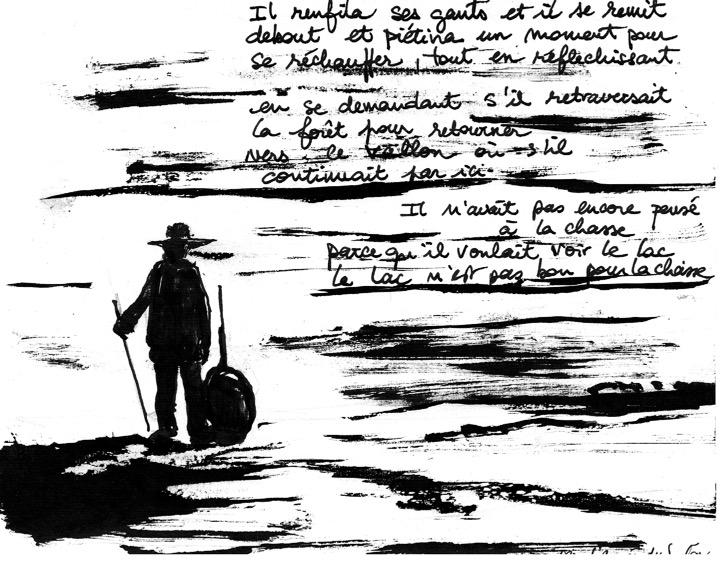 Il renfila ses gants et il se remit
debout et piétina un moment pour
se réchauffer, tout en réfléchissant
en se demandant s'il retraversait
la forêt pour retourner
vers le vallon où s'il
continuait par ici.
Il n'avait pas encore pensé
à la chasse
parce qu'il voulait voir le lac
le lac n'est pas bon pour la chasse